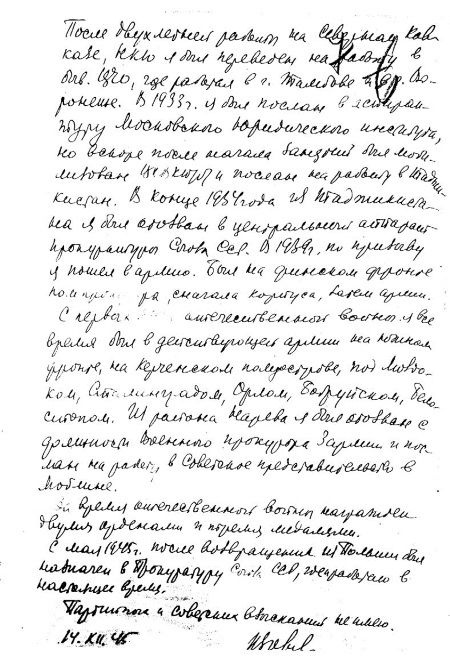 После двухлетней работы на Северном Кав-
казе, НКЮ я был переведен на работу в
быв. ЦЧО, где работал в г. Тамбове и Во-
ронеже. В 1933 г. я был послан в аспиран-
туру Московского юридического института,
но вскоре после начала занятий был моби-
лизован и послан на работу в Таджи-
кистан. В конце 1934 года из Таджикиста-
на я был отозван в центральный аппарат
Прокуратуры Союза ССР. В 1939 г. по призыву
я пошел в армию. Был на финском фронте
сначала корпуса, затем армии.
С первых отечественной войны я все
время был в действующей армии на южном
фронте, на Керченском полуострове, под
Сталинградом, Орлом, Бобруйском, Бело-
стоком. Из района Нарева я был отозван с
должности военного прокурора 3 армии и пос-
лан на работу в Советское представительство в
Люблине.
время отечественной войны награжден
двумя орденами и тремя медалями.
С мая 1945 г. после возвращения из Польши был
назначен в Прокуратуру Союза ССР, где работаю в
настоящее время.
Партийных и советских взысканий не имею.
14.XII.45